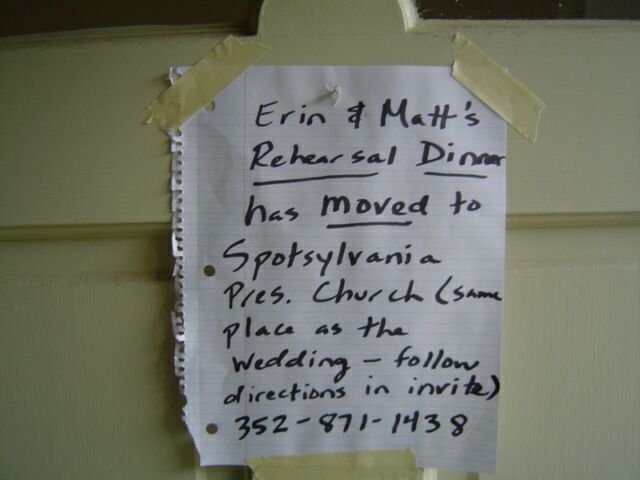 Erin & Matt's
Rehearsal Dinner
has moved to
Spotsylvania
Pres. Church (same
place as the
wedding - follow
directions in invite)
352-871-1438